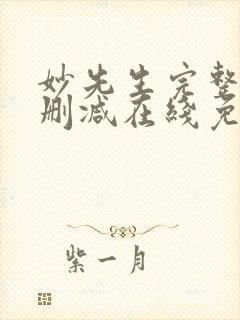 妙先生完整
删减在线免
紫一月